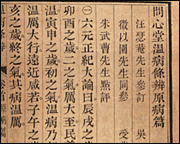 問心堂溫病條辨原病篇
汪瑟菴先生參訂 吳
徵以園先生同參 受業
朱武曹先生點評
一六元正紀大論曰辰戌之
卯酉之歲二之氣厲大至民
溫寅申之歲初之氣溫病
溫厲大行遠近咸若子午之
亥之歲終之氣其病溫厲